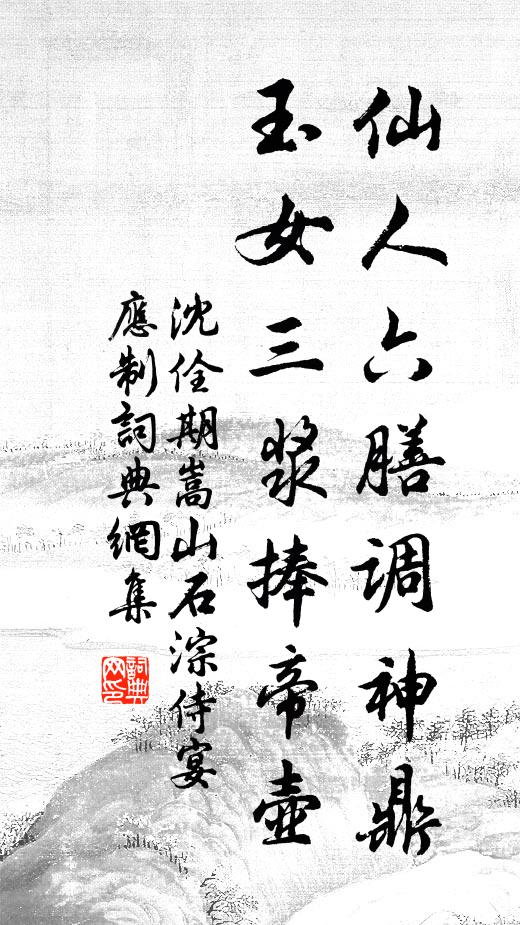 仙人六膳调神鼎
玉女三浆捧帝壶
沈佺期嵩山石淙侍宴
應制詞典網集
詞典網印